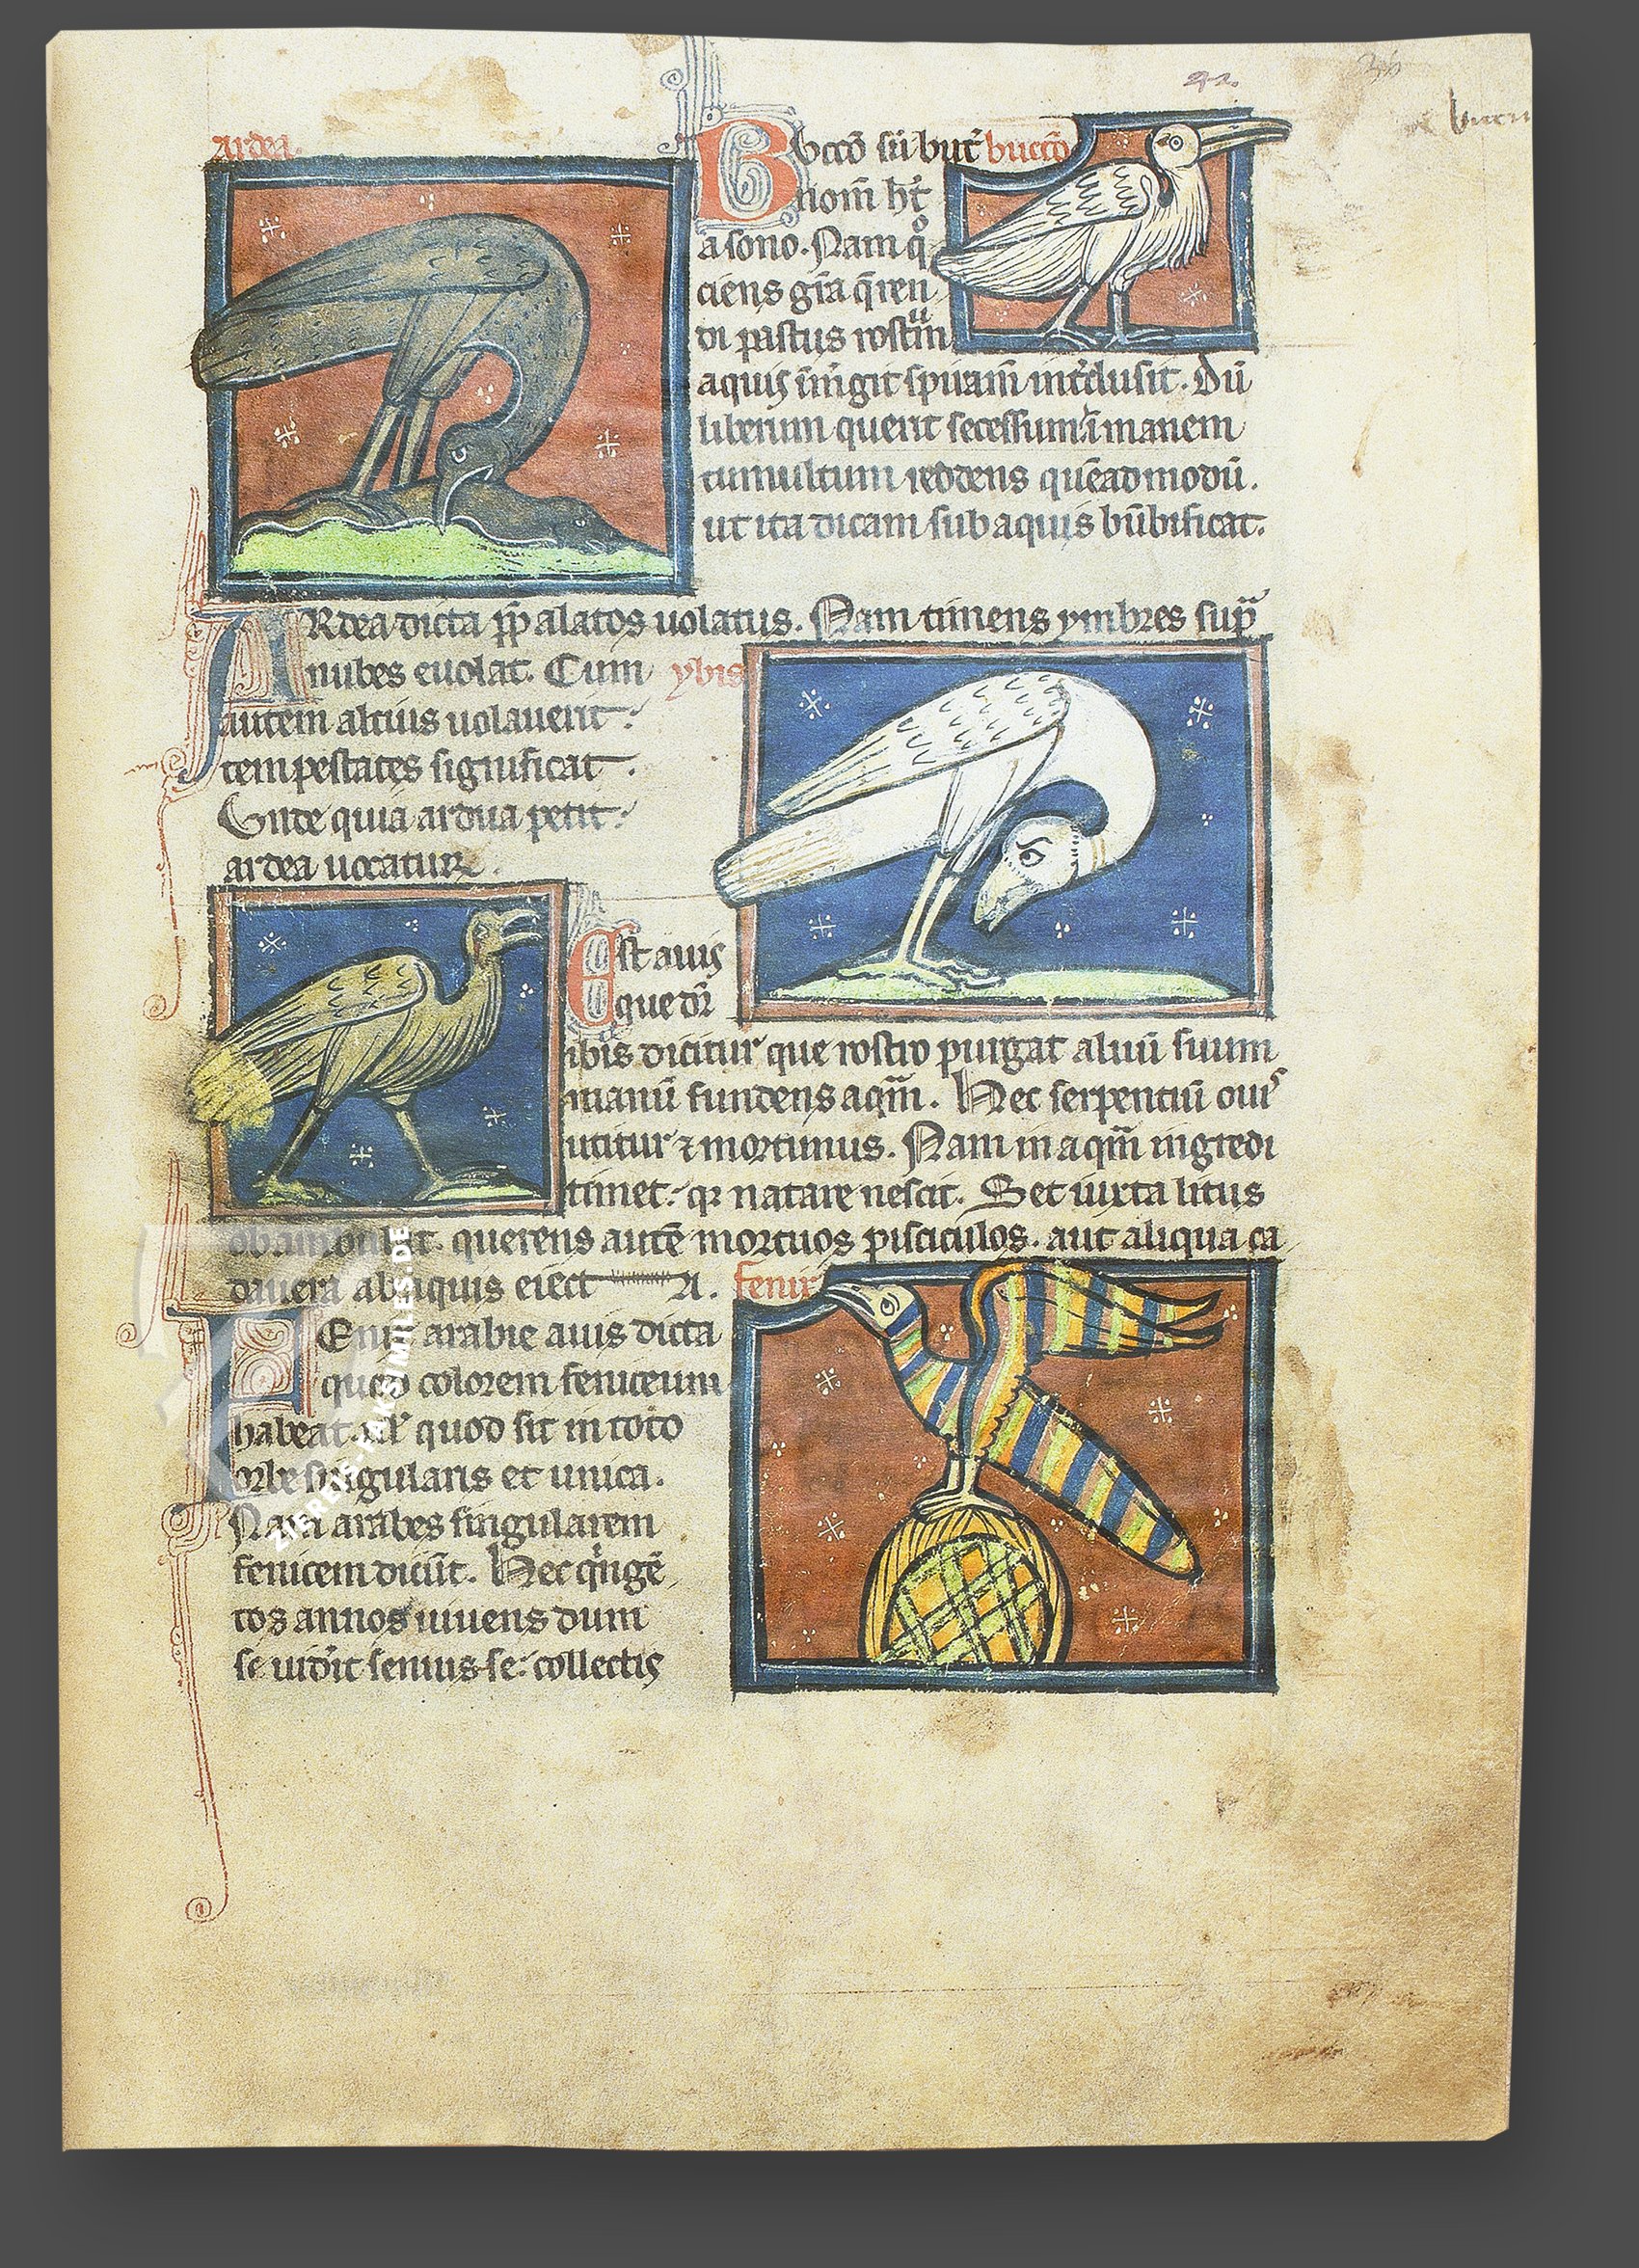 42.
ardea.
Bucco siue but bucco
nom̄ ht̄
a sono. Nam qͦ
ciens gr̄a q̄ren
di pastus rostrū
aquis
liberum querit secessum manem
tumultum reddens quēadmodū.
ut ita dicam sub aquis būbificat.
ARdea dicta pp̄ alatos uolatus. Nam timens ymbres sup̄
nubes euolat. Cum ybis
autem altius uolauerit:
tempestates significat.
Unde quia ardua petit:
ardea uocatur.
Est auis
que dr̄
ibis dicitur que rostro purgat aluū suum
manū fundens aqm̄. Hec serpentiū ouis
utitur ⁊ mortinus. Nam in aqm̄ ingredi
timet: qꝛ natare nescit. Set iuxta litus
obambulat. querens autē mortuos pisciculos. aut aliqua ca
dauera ab aquis eiect a. fenix
FEnix arabie auis dicta
quod colorem feniceum
habeat. uel quod sit in toto
orbe singularis et unica.
Nam arabes singularem
fenicem dicūt. Hec qͥngē
tos annos uiuens dum
se uid̄it senius se: collectis
ZIEREIS-FAKSIMILES.DE